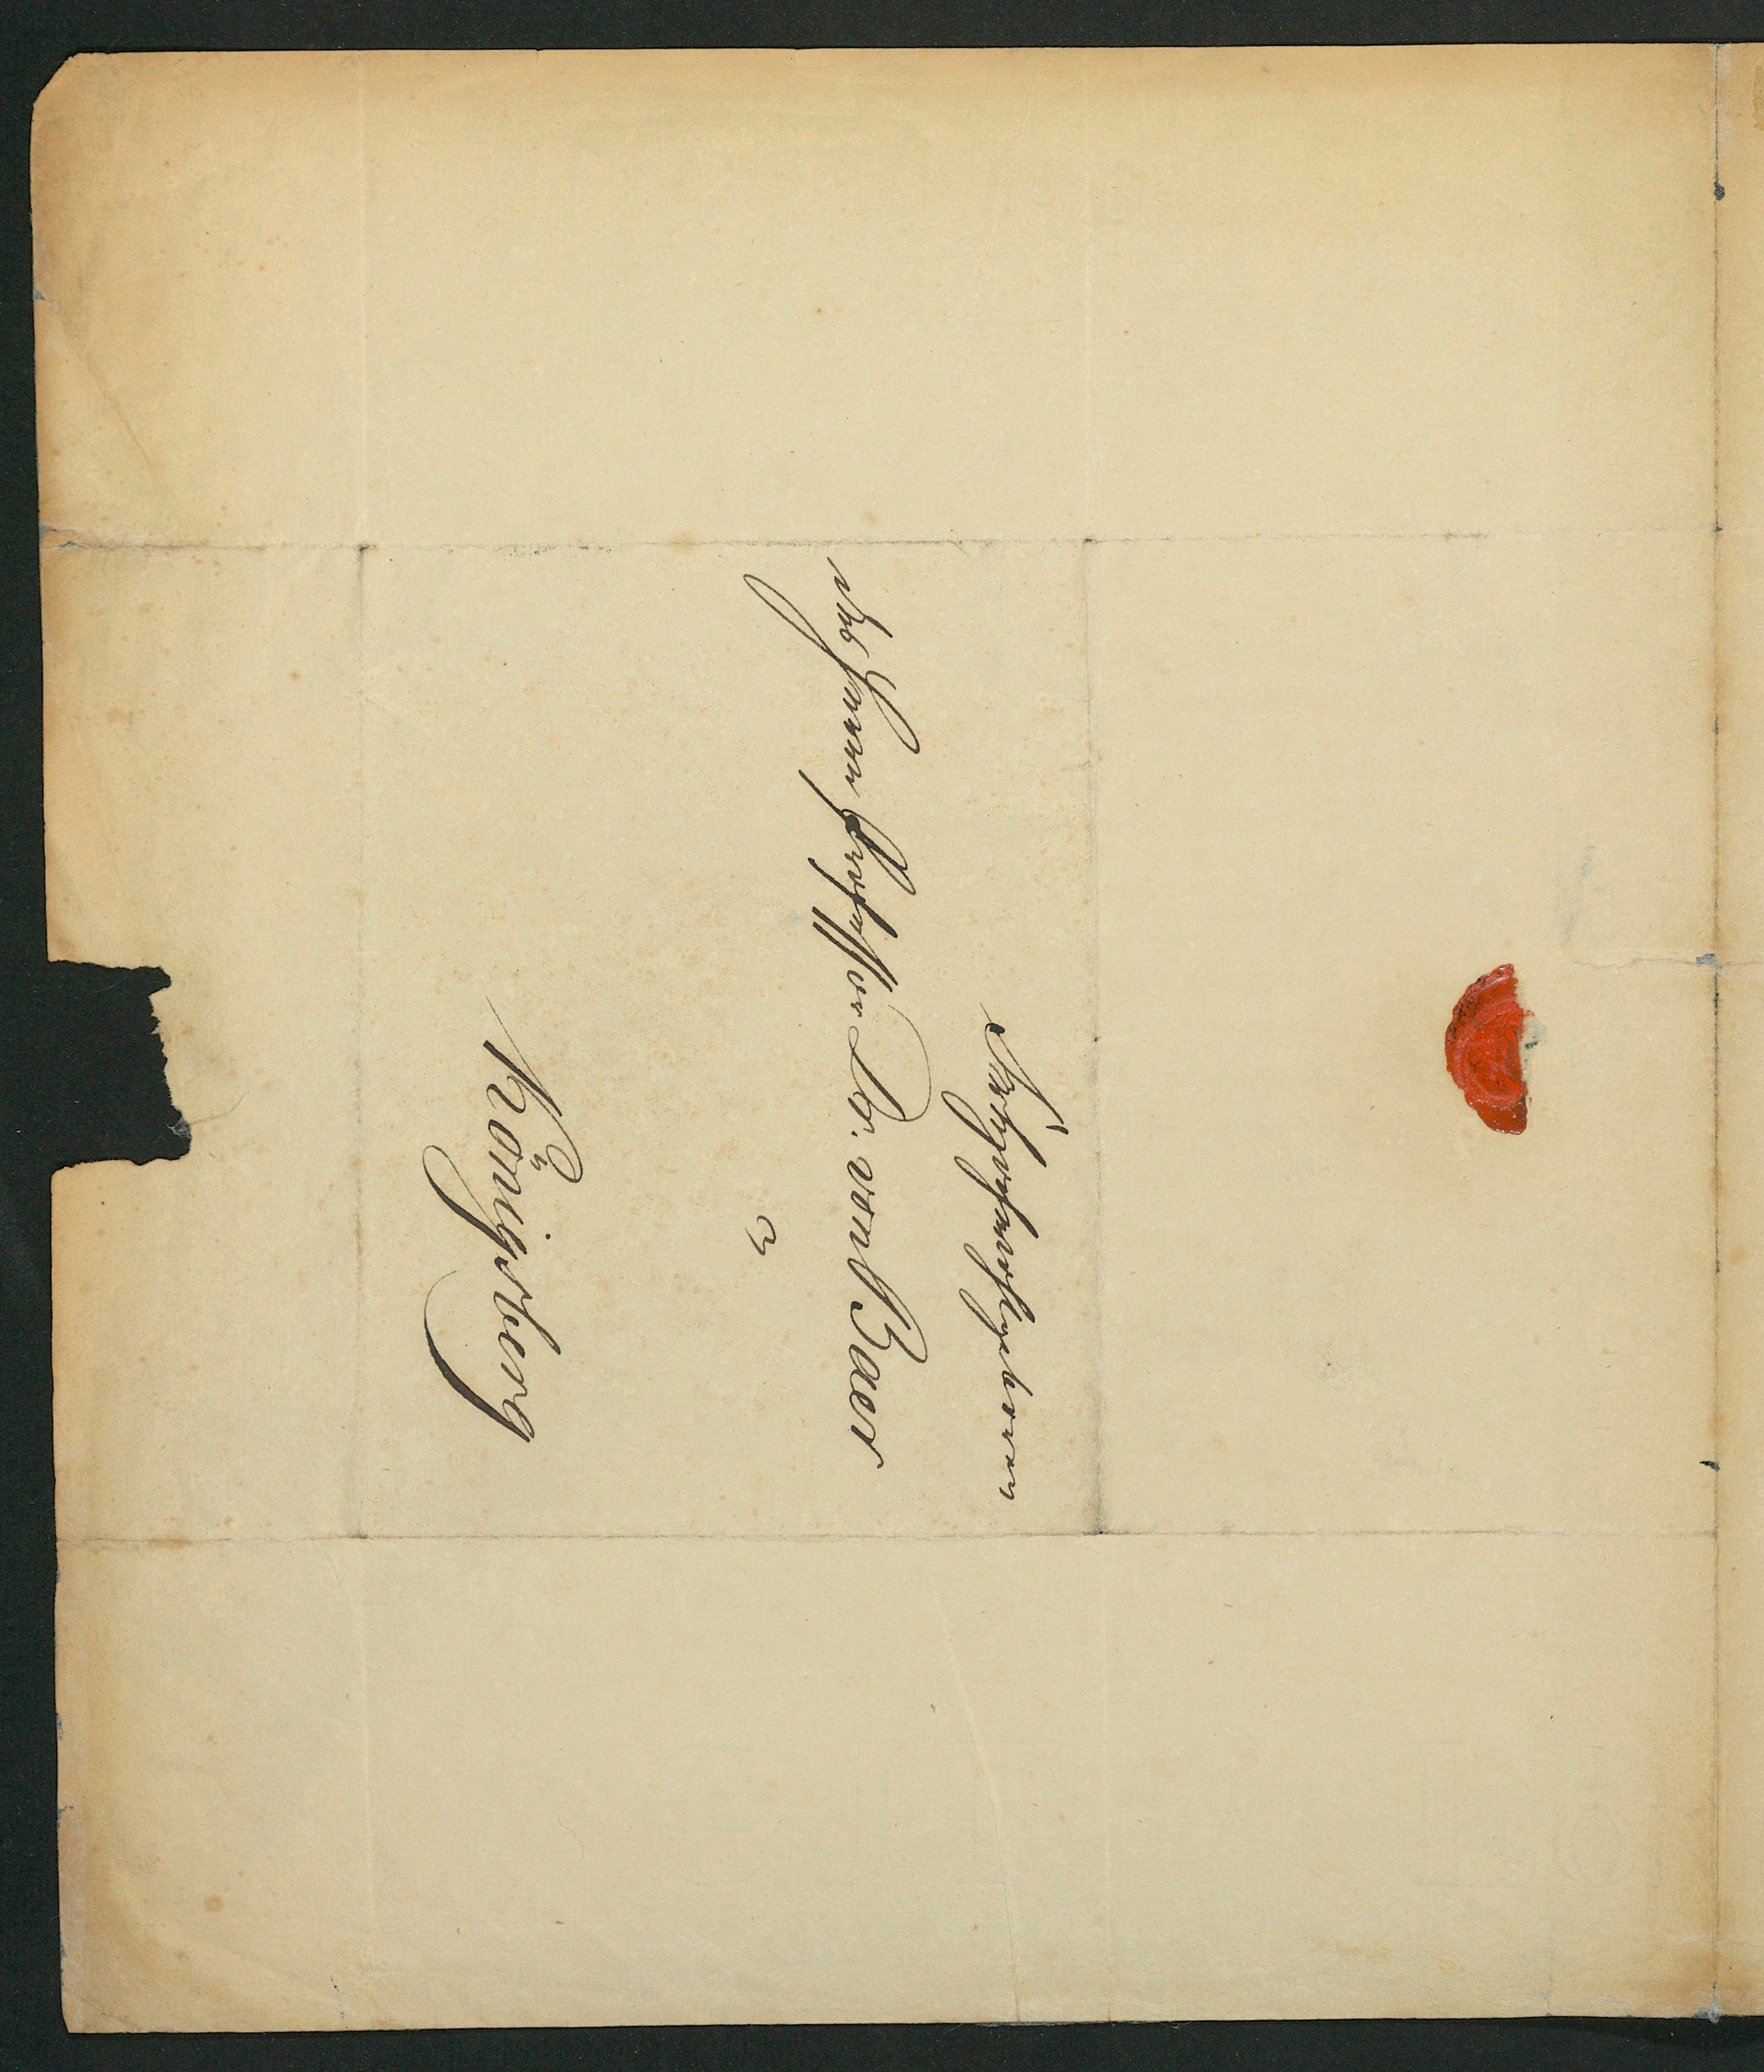 Hochwohlgeboren
des Herrn Professor Dr. von Baer
Königsberg